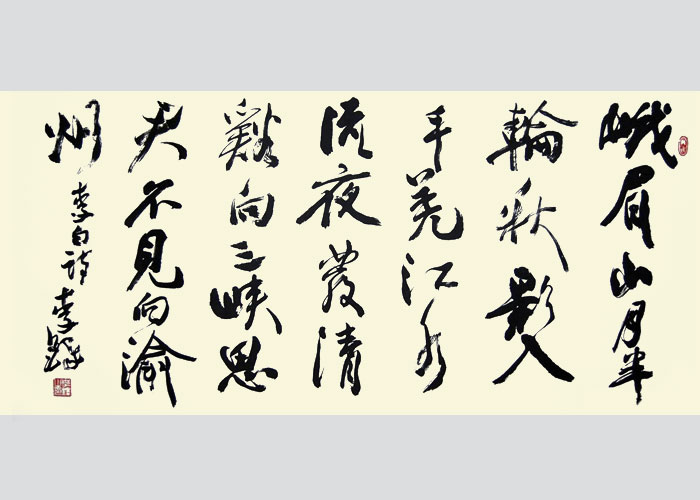 峨眉山月半
輪秋影入
平羌江水
流夜發清
谿向三峽思
君不見向渝
州 李白詩 李鐸